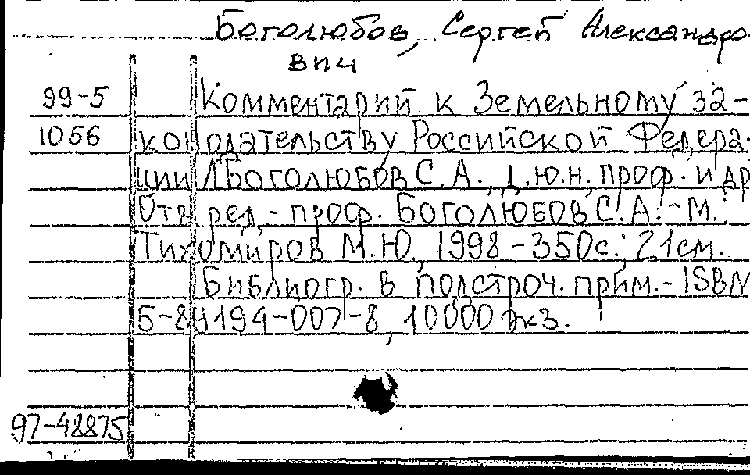 Боголюбов, Сергей Александро
вич
99-5 Комментарий к Земельному за-
1056 конодательству Российской Федера-
ции / Боголюбов С.А., д.ю.н, проф. и др
Отв ред. - проф. Боголюбов С.А. - М.:
Тихомиров М.Ю, 1998 - 350с.; 21см.
Библиогр. в подстроч. прим. - ISBN
5-84194-007-8, 10000 экз.
97-48875